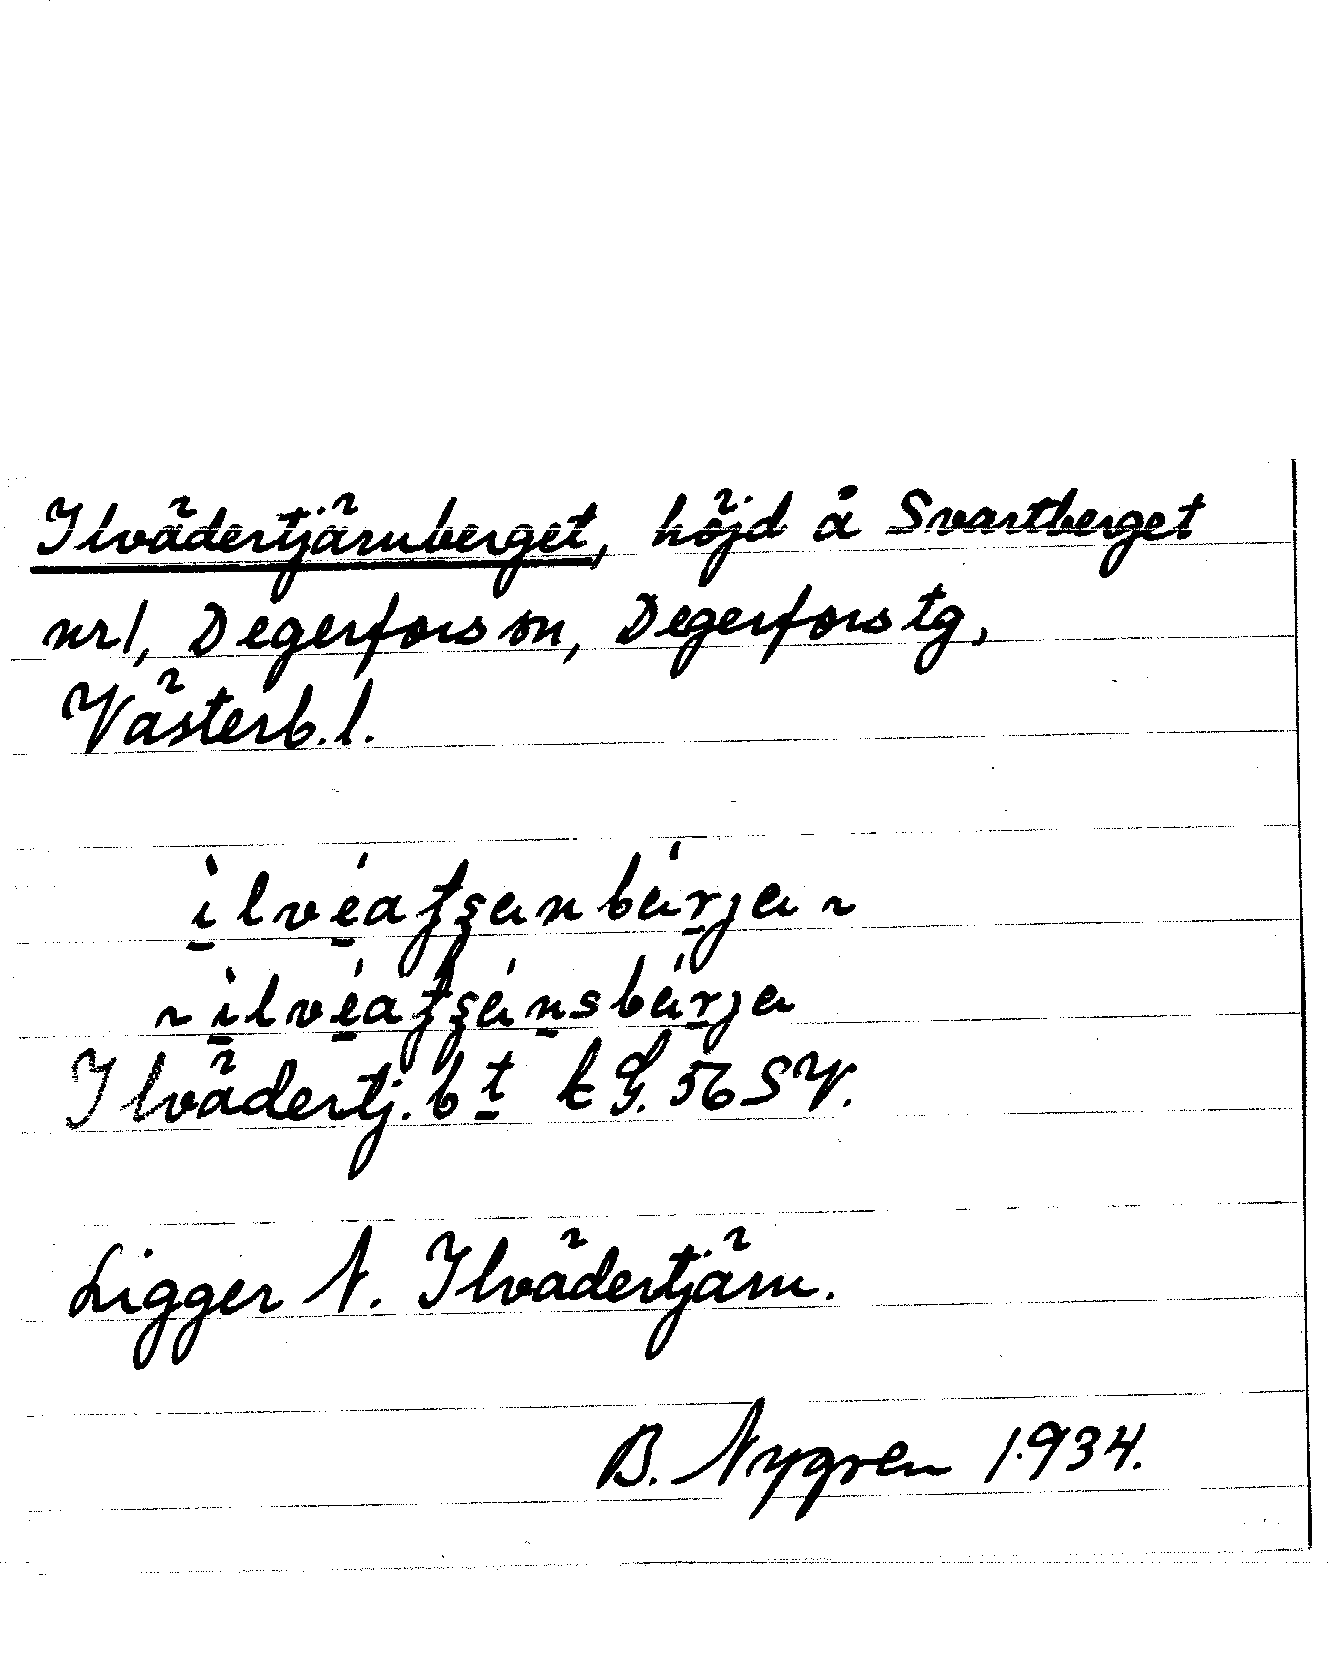 Ilvädertjärnberget, höjd å Svartberget
nr 1, Degerfors sn, Degerfors tg,
Västerb. l.
Ilvädertj. bt k G. 56 SV.
Ligger N. Ilvädertjärn.
B. Nygren 1934.